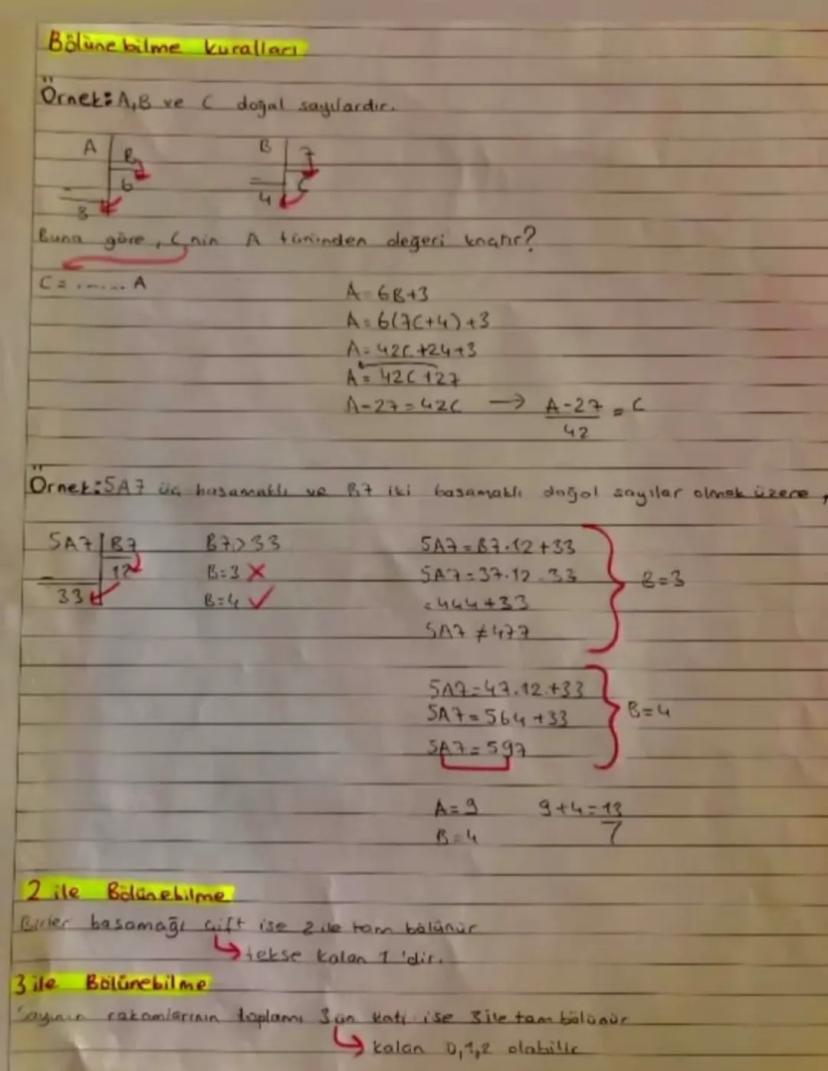 Bölünebilme kuralları
Örnek: A,B ve C doğal sayılardır.
A B B 7
6 C
3 4
Buna göre, C nin A türünden değeri kaçtır?
C = ...... A
A = 6B+3
A = 6(7C+4)+3
A = 42C+24+3
A = 42C+27
A-27 = 42C → A-27 = C
42
Örnek: 5A7 üç basamaklı ve B7 iki basamaklı doğal sayılar olmak üzere,
5A7 B7 B7>33 5A7 = B7.12+33
12 B=3 X 5A7 = 37.12 33 B=3
33 B=4 ✓ = 444+33
5A7 ≠ 477
5A7 = 47.12+33
5A7 = 564+33 B=4
5A7 = 597
A = 9 9+4 = 13
B = 4
2 ile Bölünebilme
Birler basamağı çift ise 2 ile tam bölünür
↳ tekse kalan 1'dir.
3 ile Bölünebilme
Sayının rakamlarının toplamı 3 ün katı ise 3 ile tam bölünür
↳ kalan 0,1,2 olabilir